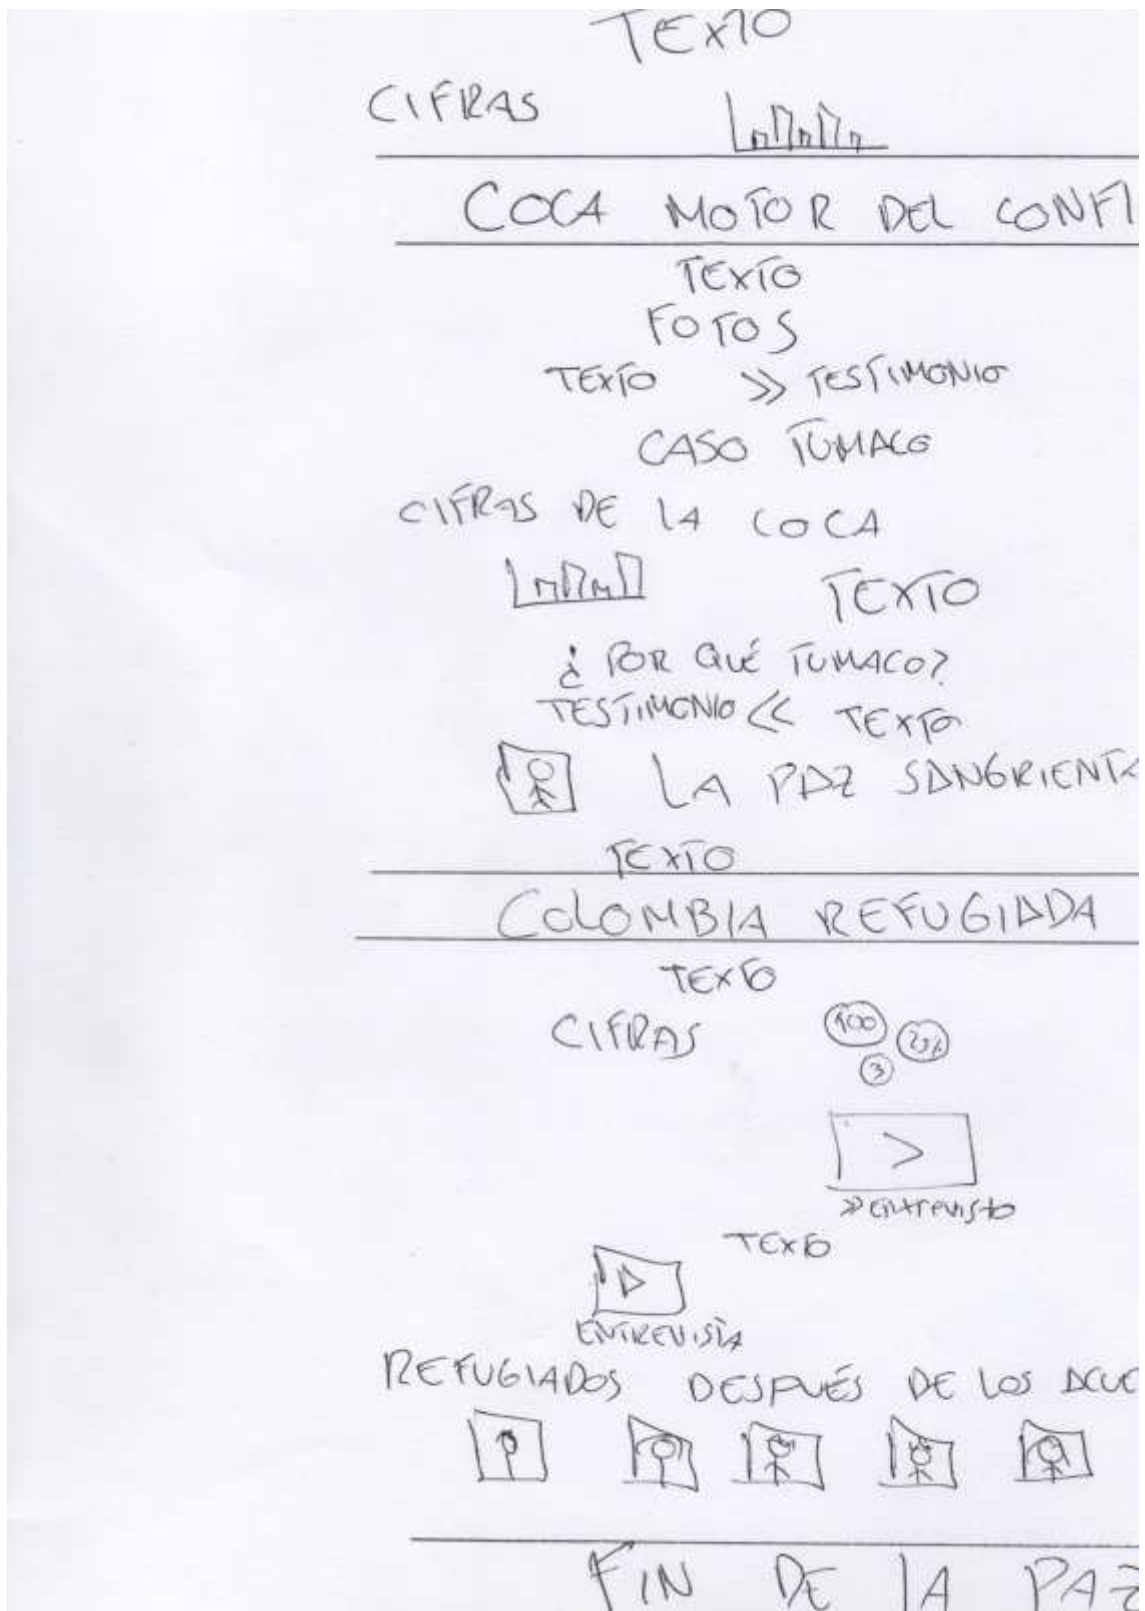 TEXTO
CIFRAS
COCA MOTOR DEL CONFL
TEXTO
FOTOS
TEXTO >> TESTIMONIO
CASO TUMACO
CIFRAS DE LA COCA
TEXTO
¿POR QUÉ TUMACO?
TESTIMONIO << TEXTO
LA PAZ SANGRIENTA
TEXTO
COLOMBIA REFUGIADA
TEXTO
CIFRAS
3
>> entrevista
TEXTO
ENTREVISTA
REFUGIADOS DESPUÉS DE LOS ACUE
FIN DE LA PAZ